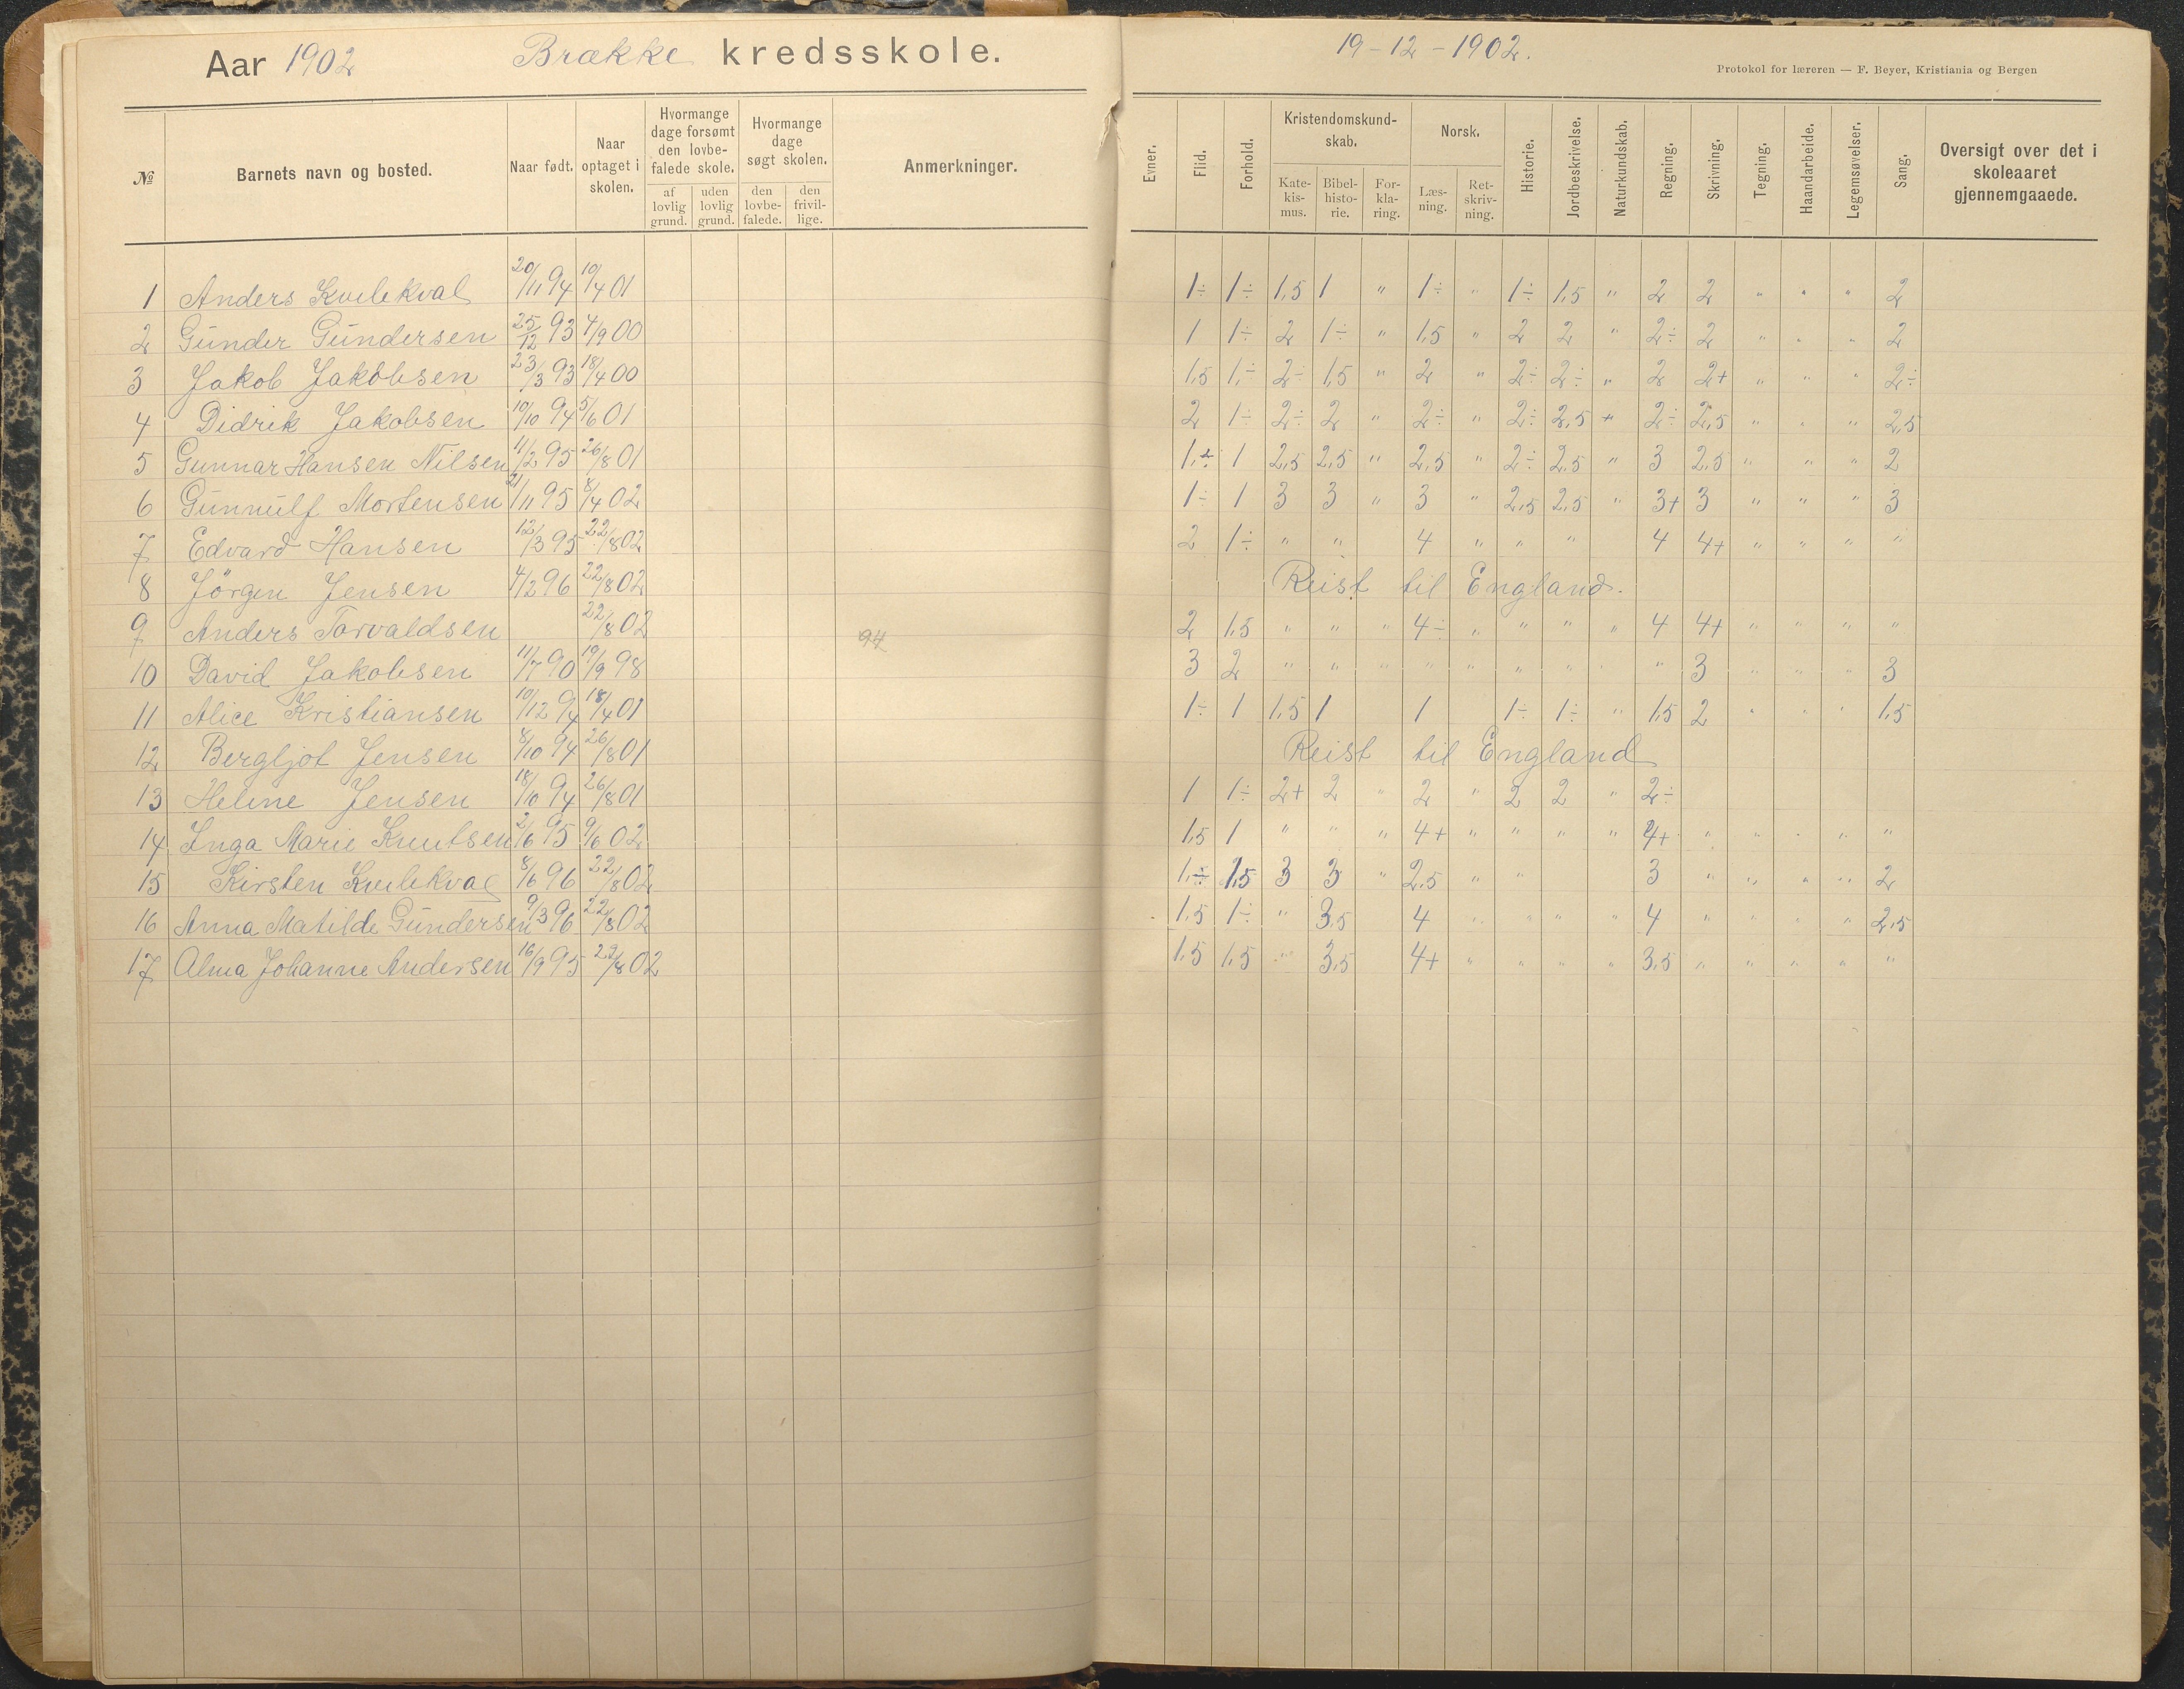 Aar 1902 Brække kredsskole.
19-12-1902.
Protokol for læreren — F. Beyer, Kristiania og Bergen
№ Barnets navn og bosted. Naar født. Naar optaget i skolen. Hvormange dage forsømt den lovbefalede skole. af lovlig grund. uden lovlig grund. Hvormange dage søgt skolen. den lovbefalede. den frivillige. Anmerkninger.
Evner. Flid. Forhold. Kristendomskundskab. Katekismus. Bibelhistorie. Forklaring. Norsk. Læsning. Retskrivning. Historie. Jordbeskrivelse. Naturkundskab. Regning. Skrivning. Tegning. Haandarbeide. Legemsøvelser. Sang. Oversigt over det i skoleaaret gjennemgaaede.
1 Anders Kvilekval 20/11 94 19/4 01 1÷ 1÷ 1,5 1 " 1÷ " 1÷ 1,5 " 2 2 " " " 2
2 Gunder Gundersen 25/12 93 4/9 00 1 1÷ 2 1÷ " 1,5 " 2 2 " 2÷ 2 " " " 2
3 Jakob Jakobsen 23/3 93 18/4 00 1,5 1÷ 2÷ 1,5 " 2 " 2÷ 2÷ " 2 2+ " " " 2÷
4 Didrik Jakobsen 10/10 94 5/6 01 2 1÷ 2÷ 2 " 2÷ " 2÷ 2,5 " 2÷ 2,5 " " " 2,5
5 Gunnar Hansen Nilsen 11/2 95 26/8 01 1÷ 1 2,5 2,5 " 2,5 " 2÷ 2,5 " 3 2,5 " " " 2
6 Gunnulf Mortensen 21/11 95 8/4 02 1÷ 1 3 3 " 3 " 2,5 2,5 " 3+ 3 " " " 3
7 Edvard Hansen 12/3 95 22/8 02 2 1÷ " " 4 " " " 4 4+ " " " "
8 Jörgen Jensen 4/2 96 22/8 02 Reist til England.
9 Anders Torvaldsen 22/8 02 2 1,5 " " " 4÷ " " " " 4 4+ " " " "
94
10 David Jakobsen 11/7 90 19/9 98 3 2 " " " " " " " " " 3 " " " 3
11 Alice Kristiansen 10/12 94 18/4 01 1÷ 1 1,5 1 1 1÷ 1÷ " 1,5 2 " " " 1,5
12 Bergljot Jensen 8/10 94 26/8 01 Reist til England
13 Helene Jensen 18/10 94 26/8 01 1 1÷ 2+ 2 " 2 " 2 2 " 2÷
14 Inga Marie Knutsen 2/6 95 9/6 02 1,5 1 " " " 4+ " " " " 4+ " " " " "
15 Kirsten Kvilekval 8/6 96 22/8 02 1÷ 1,5 3 3 " 2,5 " " 3 " " " " 2
16 Anna Matilde Gundersen 9/3 96 22/8 02 1,5 1÷ " 3,5 4 " " " " 4 " " " " 2,5
17 Alma Johanne Andersen 16/9 95 22/8 02 1,5 1,5 " 3,5 4+ " " " " 3,5 " " " " "